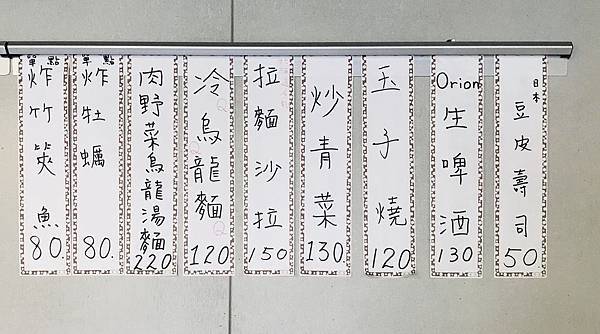 日本 豆皮壽司 50
Orion 生啤酒 130
玉子燒 120
炒青菜 130.
拉麵沙拉 150
冷烏龍麵 120
肉野菜烏龍湯麵 220
單點 炸牡蠣 80.
單點 炸竹筴魚 80.